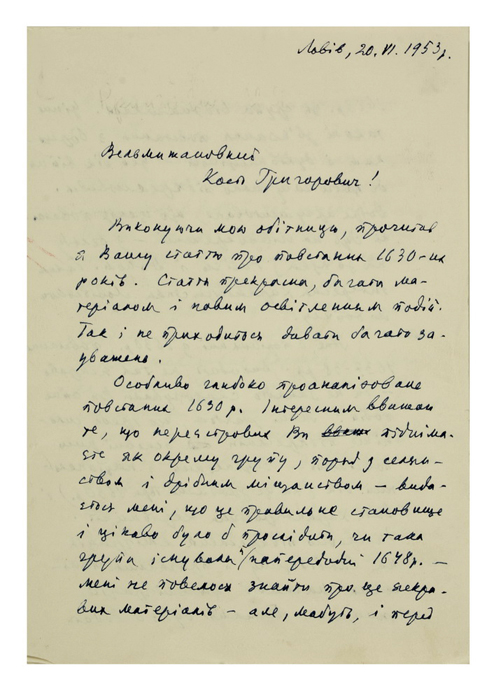 Львів, 20. VI. 1953 р.
Вельмишановний
Кость Григорович!
Виконуючи мою обітницю, прочитав
я Вашу статтю про повстання 1630-их
років. Стаття прекрасна, багата ма-
теріалом і новим освітленням подій.
Так і не приходиться давати багато за-
уважень.
Особливо глибоко проаналізоване
повстання 1630 р. Інтересним вважаю
те, що нереєстрових Ви підніма-
єте як окрему групу, поряд з селян-
ством і дрібним міщанством – вида-
ється мені, що це правильне становище
і цікаво було б прослідити, чи така
група існувала й напередодні 1648 р. –
мені не повелося знайти про це яскра-
вих матеріалів – але, мабуть, і перед